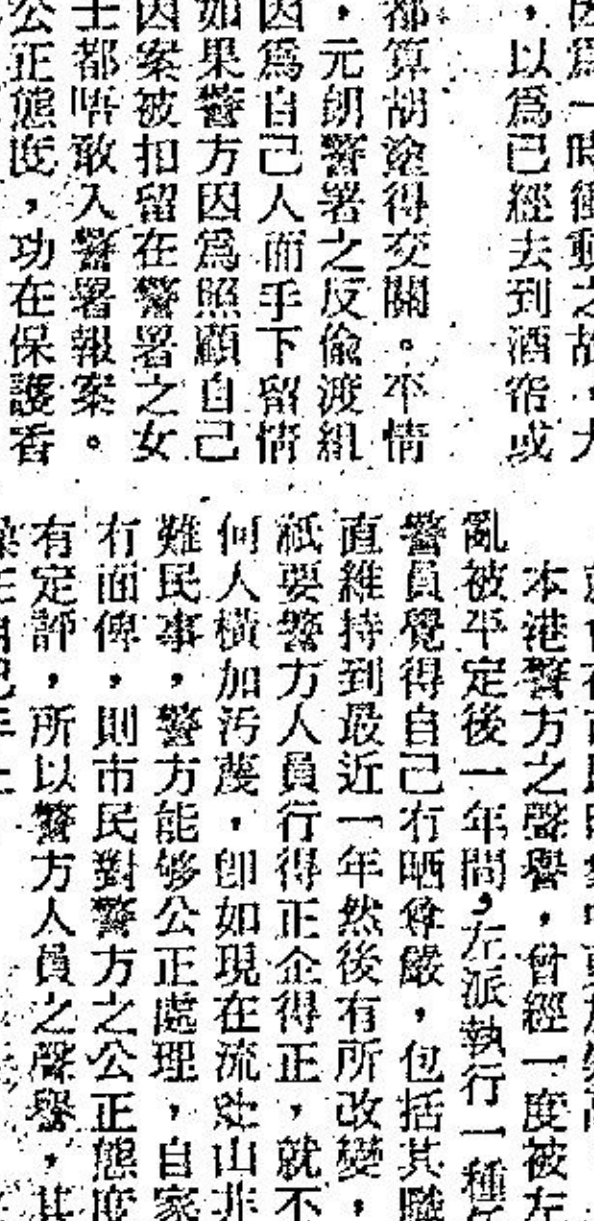 因爲一時衝動之故，大
，以爲已經去到酒帘或
都算胡塗得交關。平情
，元朗警署之反偷渡組
因爲自己人而手下留情
如果警方因爲照顧自己
因案被扣留在警署之女
士都唔敢入警署報案。
公正態度，功在保護香
本港警方之聲譽，曾經一度被左
亂被平定後一年間，左派執行一種
警員覺得自己冇晒尊嚴，包括其職
直維持到最近一年然後有所改變，
祇要警方人員行得正企得正，就不
何人橫加污衊，卽如現在流
難民事，警方能够公正處理，自家
冇面俾，則市民對警方之公正態度
有定評，所以警方人員之聲譽，其